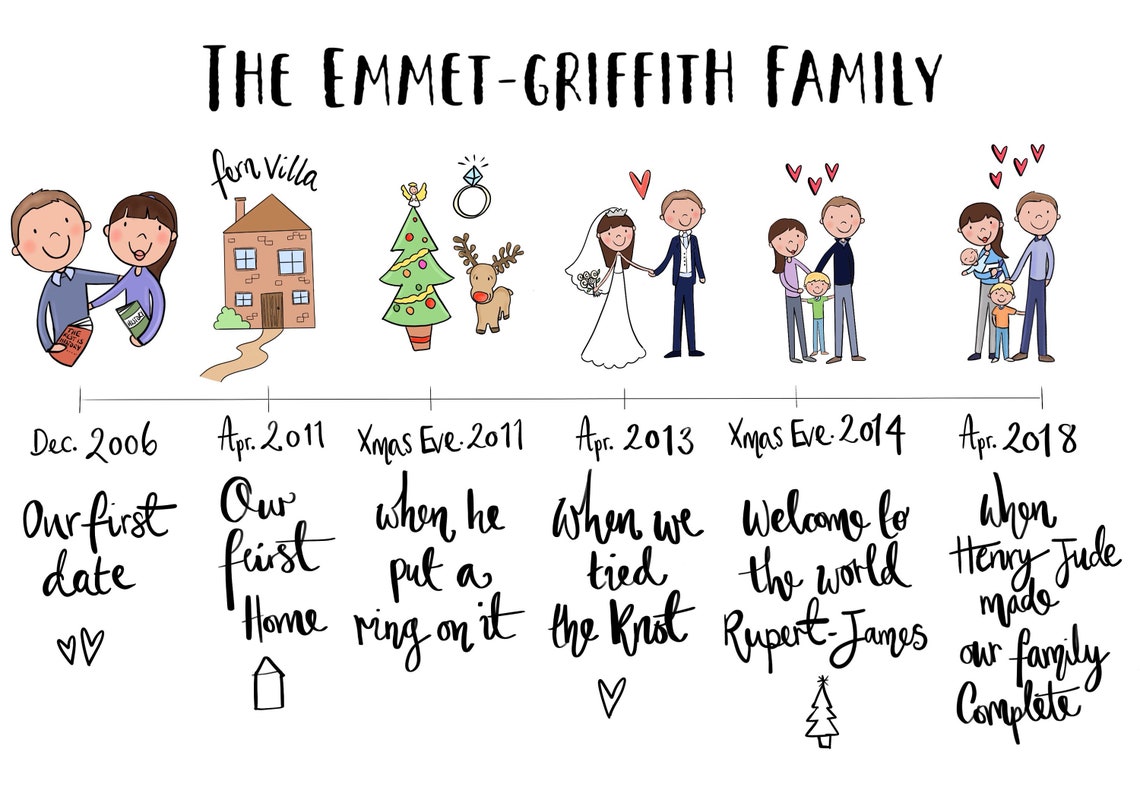 THE EMMET-GRIFFITH FAMILY
fern Villa
Dec. 2006
Our first
date
Apr. 2011
Our
first
Home
Xmas Eve. 2011
when he
put a
ring on it
Apr. 2013
When we
tied
the Knot
Xmas Eve. 2014
Welcome to
the world
Rupert-James
Apr. 2018
When
Henry Jude
made
our family
Complete